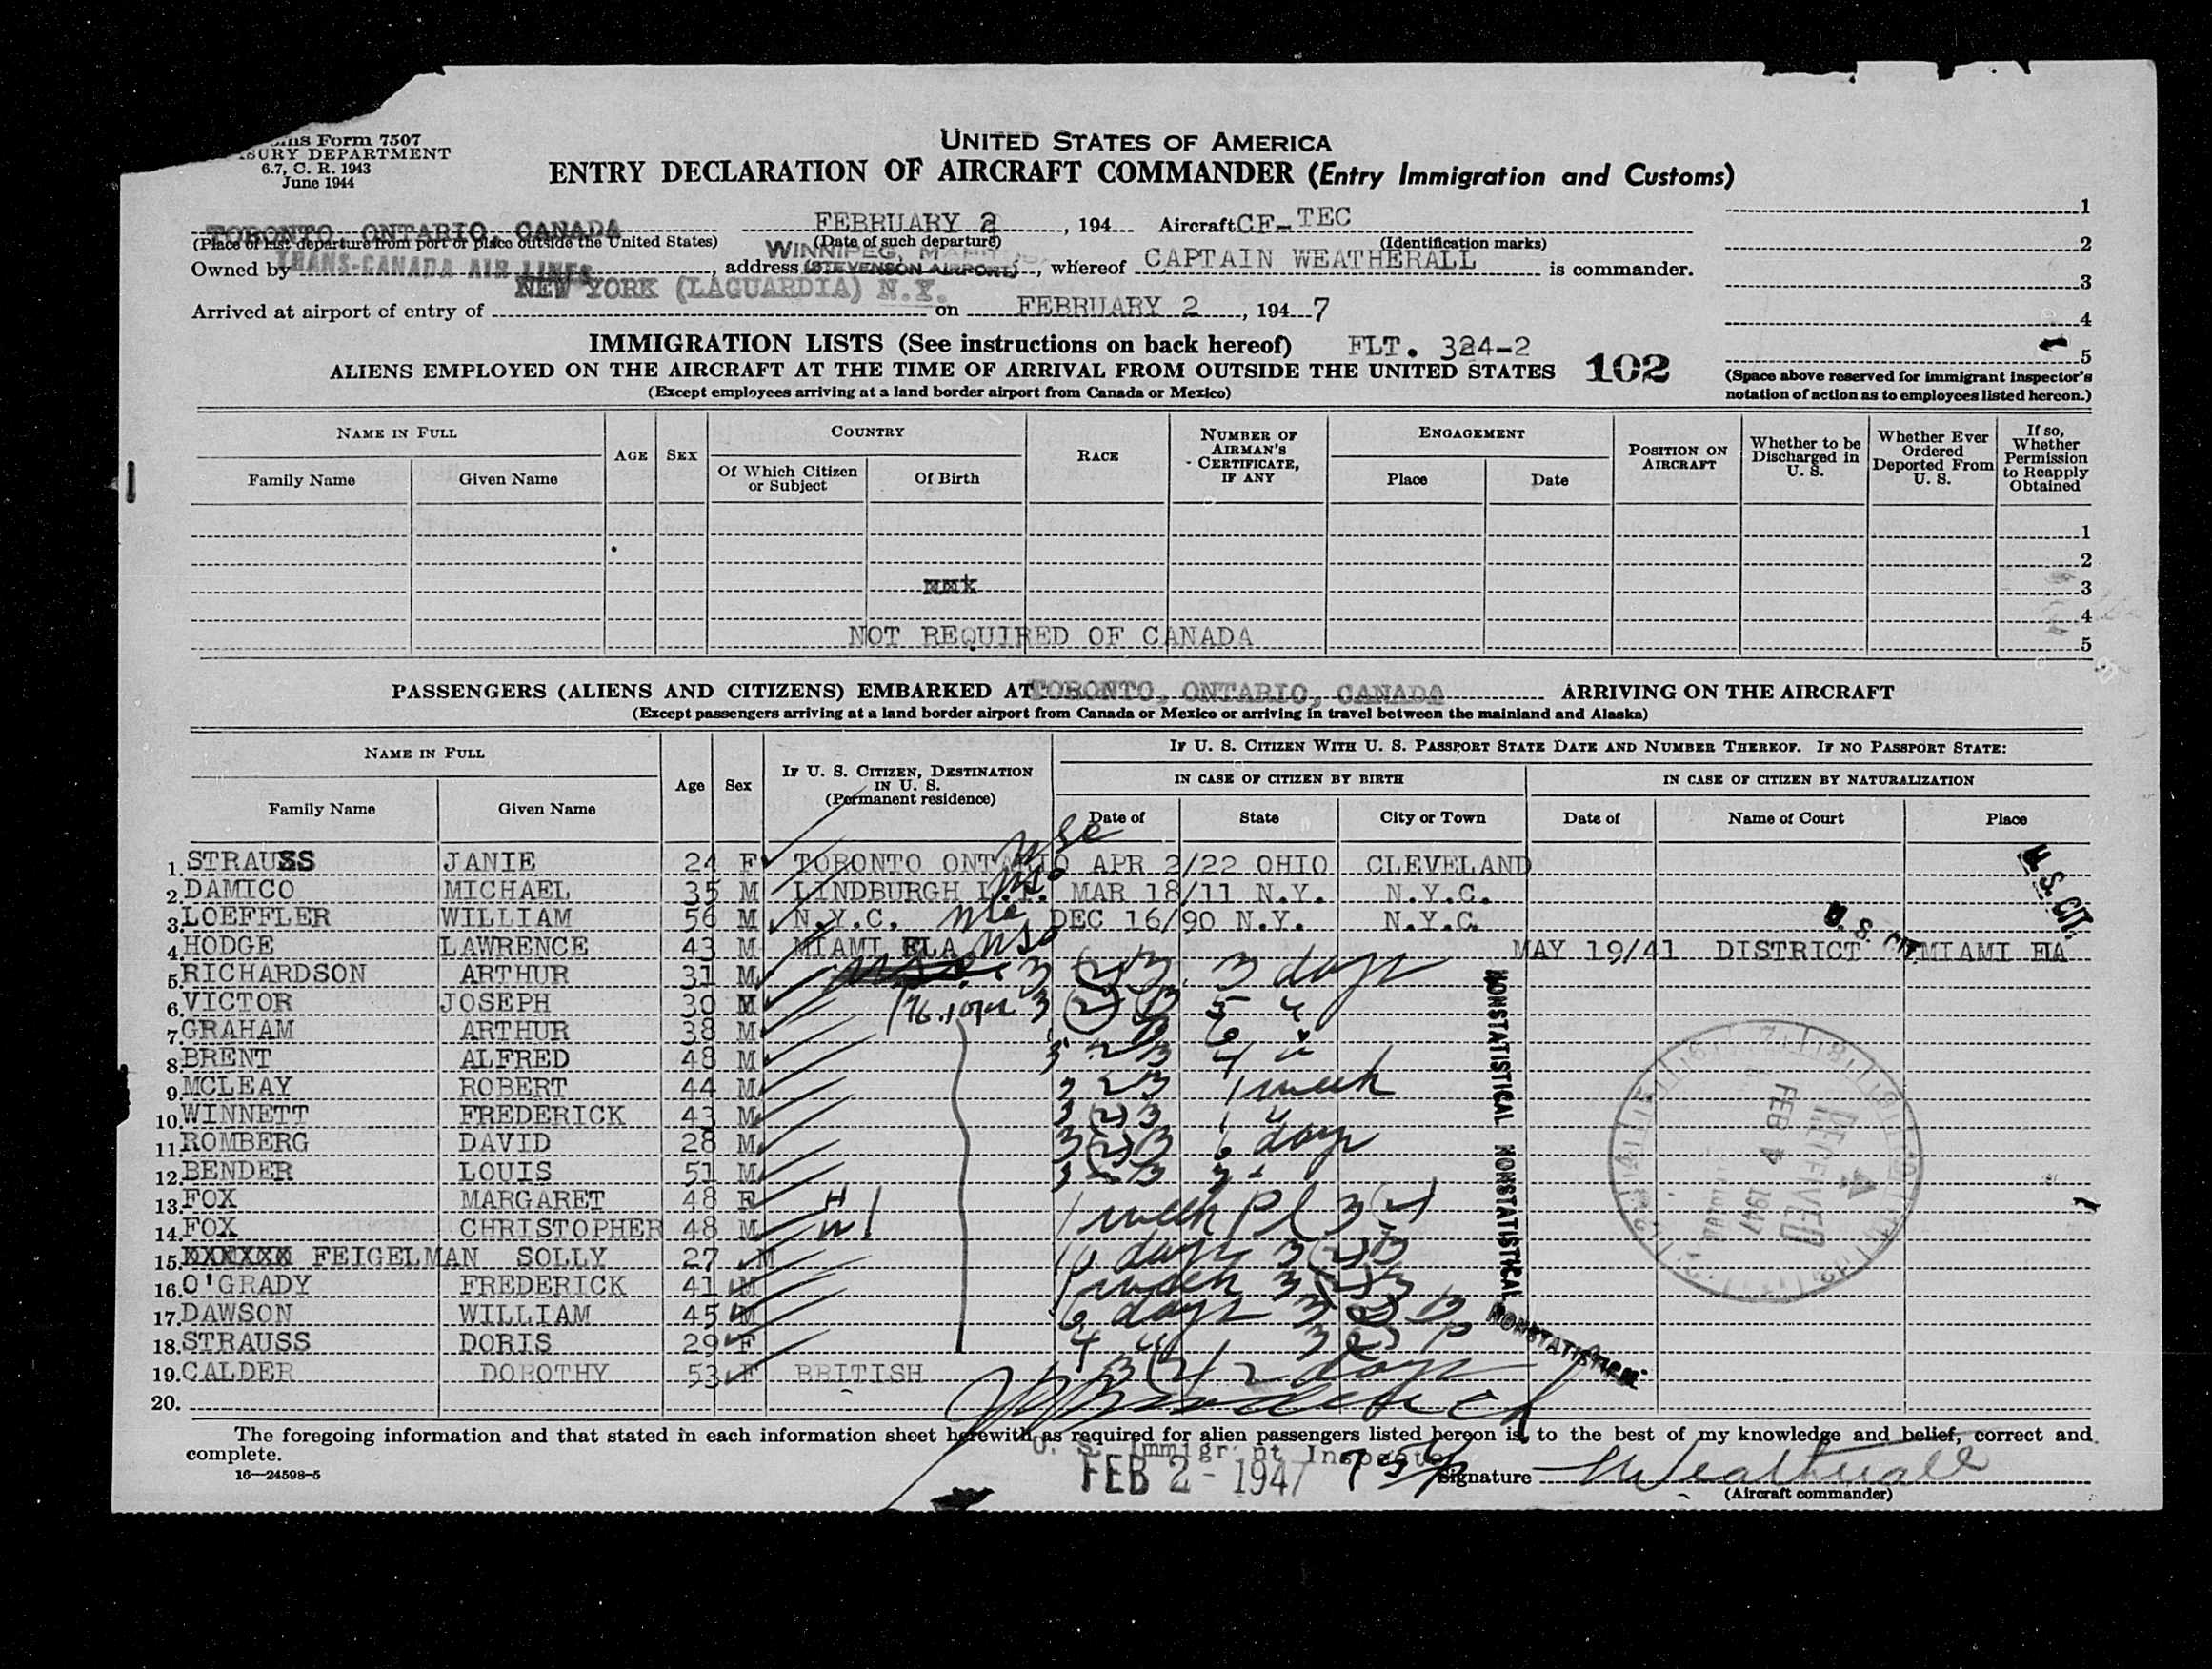 Form 7507
DEPARTMENT
6.7, C. R. 1943
June 1944
UNITED STATES OF AMERICA
ENTRY DECLARATION OF AIRCRAFT COMMANDER (Entry Immigration and Customs)
TORONTO, ONTARIO, CANADA FEBRUARY 2, 194 Aircraft CF-TEC
(Place of last departure from port or place outside the United States) (Date of such departure) (Identification marks)
WINNIPEG,
Owned by TRANS-CANADA AIR LINES, address (STEVENSON AIRPORT), whereof CAPTAIN WEATHERALL is commander.
NEW YORK (LAGUARDIA) N.Y.
Arrived at airport of entry of on FEBRUARY 2, 1947
1
2
3
4
5
(Space above reserved for immigrant inspector's notation of action as to employees listed hereon.)
IMMIGRATION LISTS (See instructions on back hereof) FLT. 324-2
ALIENS EMPLOYED ON THE AIRCRAFT AT THE TIME OF ARRIVAL FROM OUTSIDE THE UNITED STATES 102
(Except employees arriving at a land border airport from Canada or Mexico)
NAME IN FULL
Family Name Given Name
AGE SEX
COUNTRY
Of Which Citizen or Subject Of Birth
RACE
NUMBER OF AIRMAN'S CERTIFICATE, IF ANY
ENGAGEMENT
Place Date
POSITION ON AIRCRAFT
Whether to be Discharged in U. S.
Whether Ever Ordered Deported From U. S.
If so, Whether Permission to Reapply Obtained
1
2
3
4
NOT REQUIRED OF CANADA
5
PASSENGERS (ALIENS AND CITIZENS) EMBARKED AT TORONTO, ONTARIO, CANADA ARRIVING ON THE AIRCRAFT
(Except passengers arriving at a land border airport from Canada or Mexico or arriving in travel between the mainland and Alaska)
NAME IN FULL
Family Name Given Name
Age Sex
IF U. S. CITIZEN, DESTINATION IN U. S.
(Permanent residence)
IF U. S. CITIZEN WITH U. S. PASSPORT STATE DATE AND NUMBER THEREOF. IF NO PASSPORT STATE:
IN CASE OF CITIZEN BY BIRTH IN CASE OF CITIZEN BY NATURALIZATION
Date of State City or Town Date of Name of Court Place
1. STRAUSS JANIE 24 F TORONTO ONTARIO APR 2/22 OHIO CLEVELAND
2. DAMICO MICHAEL 35 M LINDBURGH MAR 18/11 N.Y. N.Y.C.
3. LOEFFLER WILLIAM 56 M N.Y.C. DEC 16/90 N.Y. N.Y.C.
4. HODGE LAWRENCE 43 M MIAMI FLA MAY 19/41 DISTRICT MIAMI FLA
U. S. CIT.
U. S. CIT.
5. RICHARDSON ARTHUR 31 M 3 (2) B 3 days
6. VICTOR JOSEPH 30 M 3 (2) B 5 "
7. GRAHAM ARTHUR 38 M 6 "
8. BRENT ALFRED 48 M 3 2 B 4 "
9. MCLEAY ROBERT 44 M 3 2 B 1 week
10. WINNETT FREDERICK 43 M 3 (2) B 1 "
11. ROMBERG DAVID 28 M 3 (2) B 6 days
12. BENDER LOUIS 51 M
13. FOX MARGARET 48 F H 1 week
14. FOX CHRISTOPHER 48 M W
15. XXXXXX FEIGELMAN SOLLY 27 M 10 days 3 (2) B
16. O'GRADY FREDERICK 41 M 1 week 3 (2) B
17. DAWSON WILLIAM 45 M 6 days 3 (2) B
18. STRAUSS DORIS 29 F 4 "
19. CALDER DOROTHY 53 F BRITISH 2 days
20.
NONSTATISTICAL NONSTATISTICAL
NONSTATISTICAL
RECEIVED
FEB 4 1947
The foregoing information and that stated in each information sheet herewith as required for alien passengers listed hereon is, to the best of my knowledge and belief, correct and complete.
U. S. Immigrant Inspector
FEB 2 - 1947
16—24598-5
Signature Weatherall
(Aircraft commander)